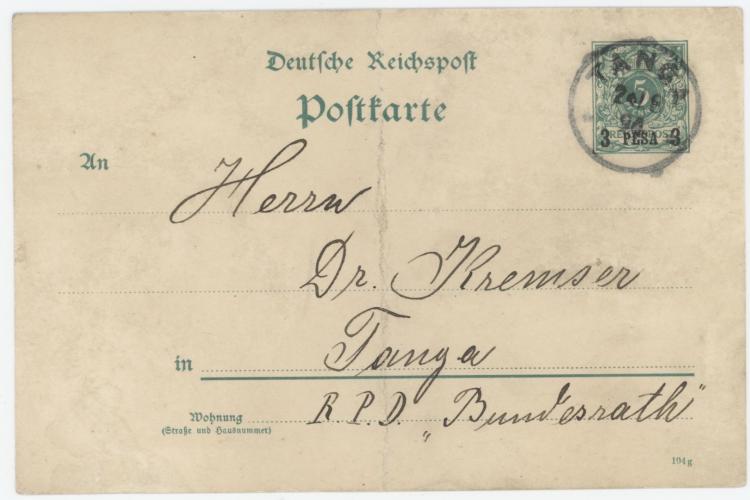 Deutsche Reichspost
Postkarte
TANGA
5
3 PESA 3
An
Herrn
Dr. Kremser
in Tanga
Wohnung
(Straße und Hausnummer)
R. P. D. „Bundesrath"
194g